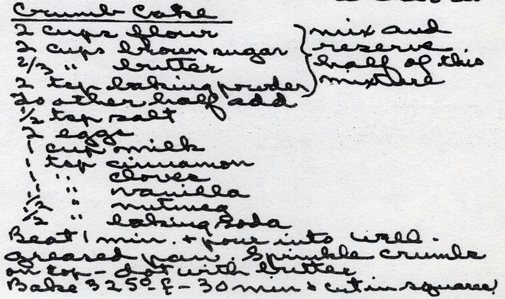 Crumb Cake
2 cups flour
2 cups brown sugar
2/3 " butter
2 tsp baking powder
mix and
reserve
half of this
mixture
To other half add
1/2 tsp salt
2 eggs
1 cup milk
1 tsp cinnamon
1 " cloves
1 " vanilla
1/2 " nutmeg
1/2 " baking soda
Beat 1 min. & pour into well-
greased pan. Sprinkle crumbs
on top - dot with butter
Bake 325° F - 30 min & cut in squares